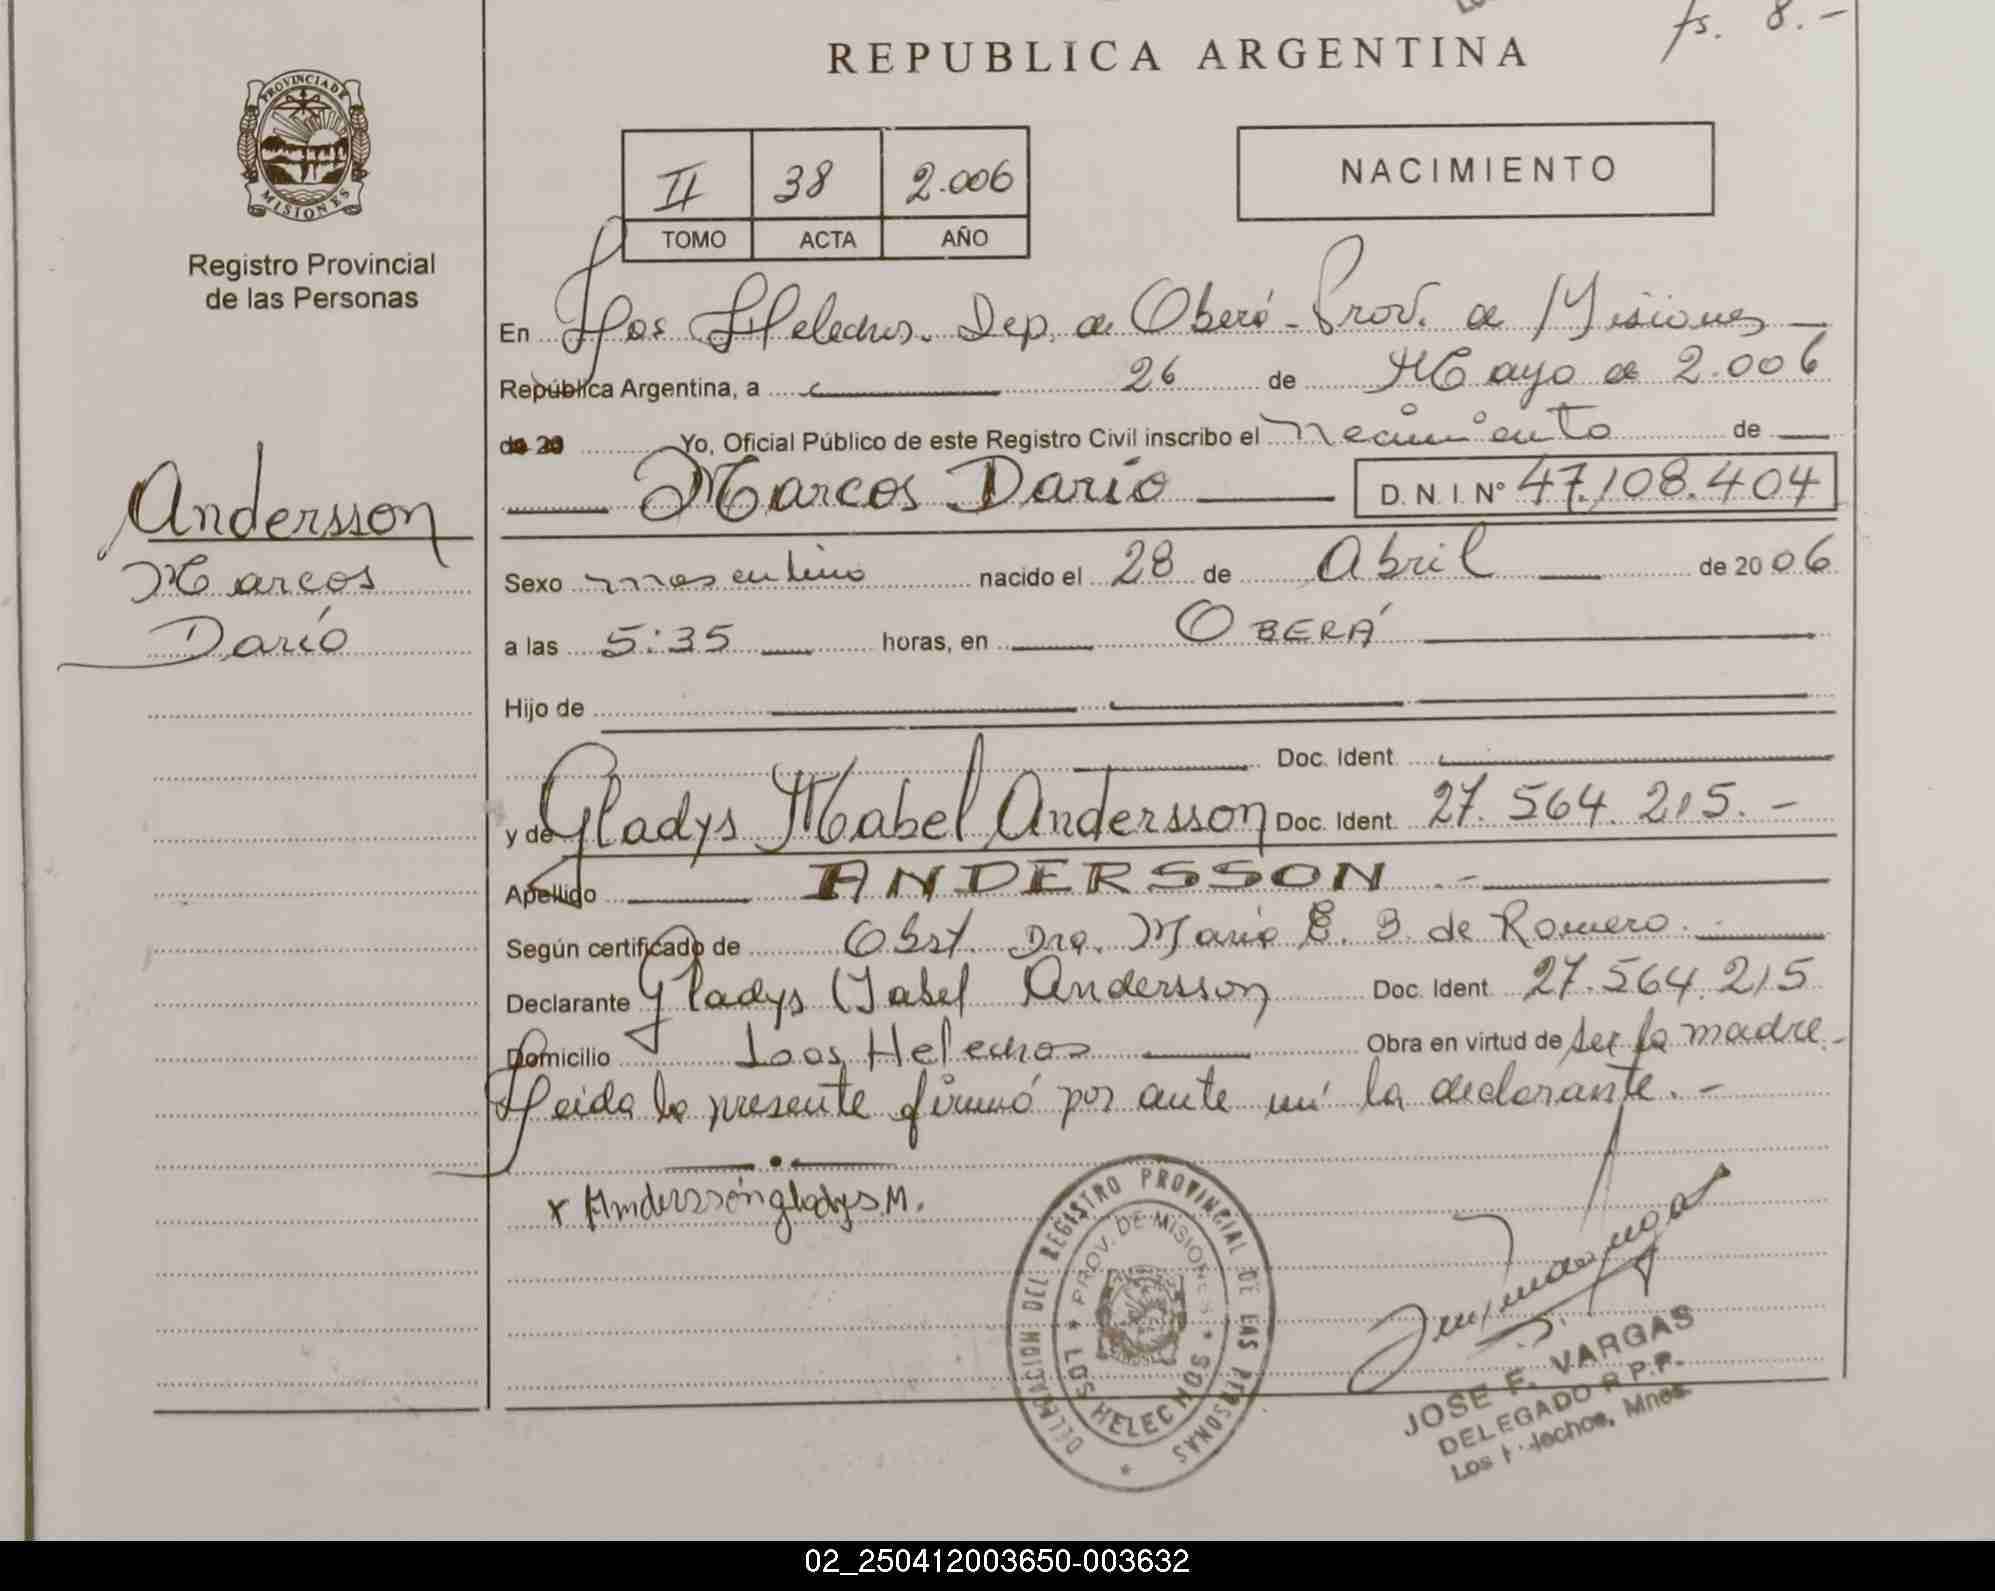 fs. 8.-
REPUBLICA ARGENTINA
PROVINCIA DE
MISIONES
Registro Provincial
de las Personas
II 38 2.006
TOMO ACTA AÑO
NACIMIENTO
En Los Helechos. Dep. de Oberá - Prov. de Misiones
República Argentina, a 26 de Mayo de 2.006
de 20 Yo, Oficial Público de este Registro Civil inscribo el Nacimiento de
Marcos Darío D. N. I. N° 47.108.404
Andersson
Marcos
Darío
Sexo masculino nacido el 28 de Abril de 20 06
a las 5:35 horas, en OBERÁ
Hijo de
Doc. Ident.
y de Gladys Mabel Andersson Doc. Ident. 27.564.215.-
Apellido ANDERSSON.-
Según certificado de Obst. Dra. María E. B. de Romero.
Declarante Gladys Mabel Andersson Doc. Ident. 27.564.215
Domicilio Los Helechos Obra en virtud de ser la madre.-
Leída la presente firmó por ante mí la declarante.-
x Anderssón gladys M.
DELEGACION DEL REGISTRO PROVINCIAL DE LAS PERSONAS
PROV. DE MISIONES
LOS HELECHOS
JOSE F. VARGAS
DELEGADO R.P.P.
Los Helechos, Mnes.
02_250412003650-003632